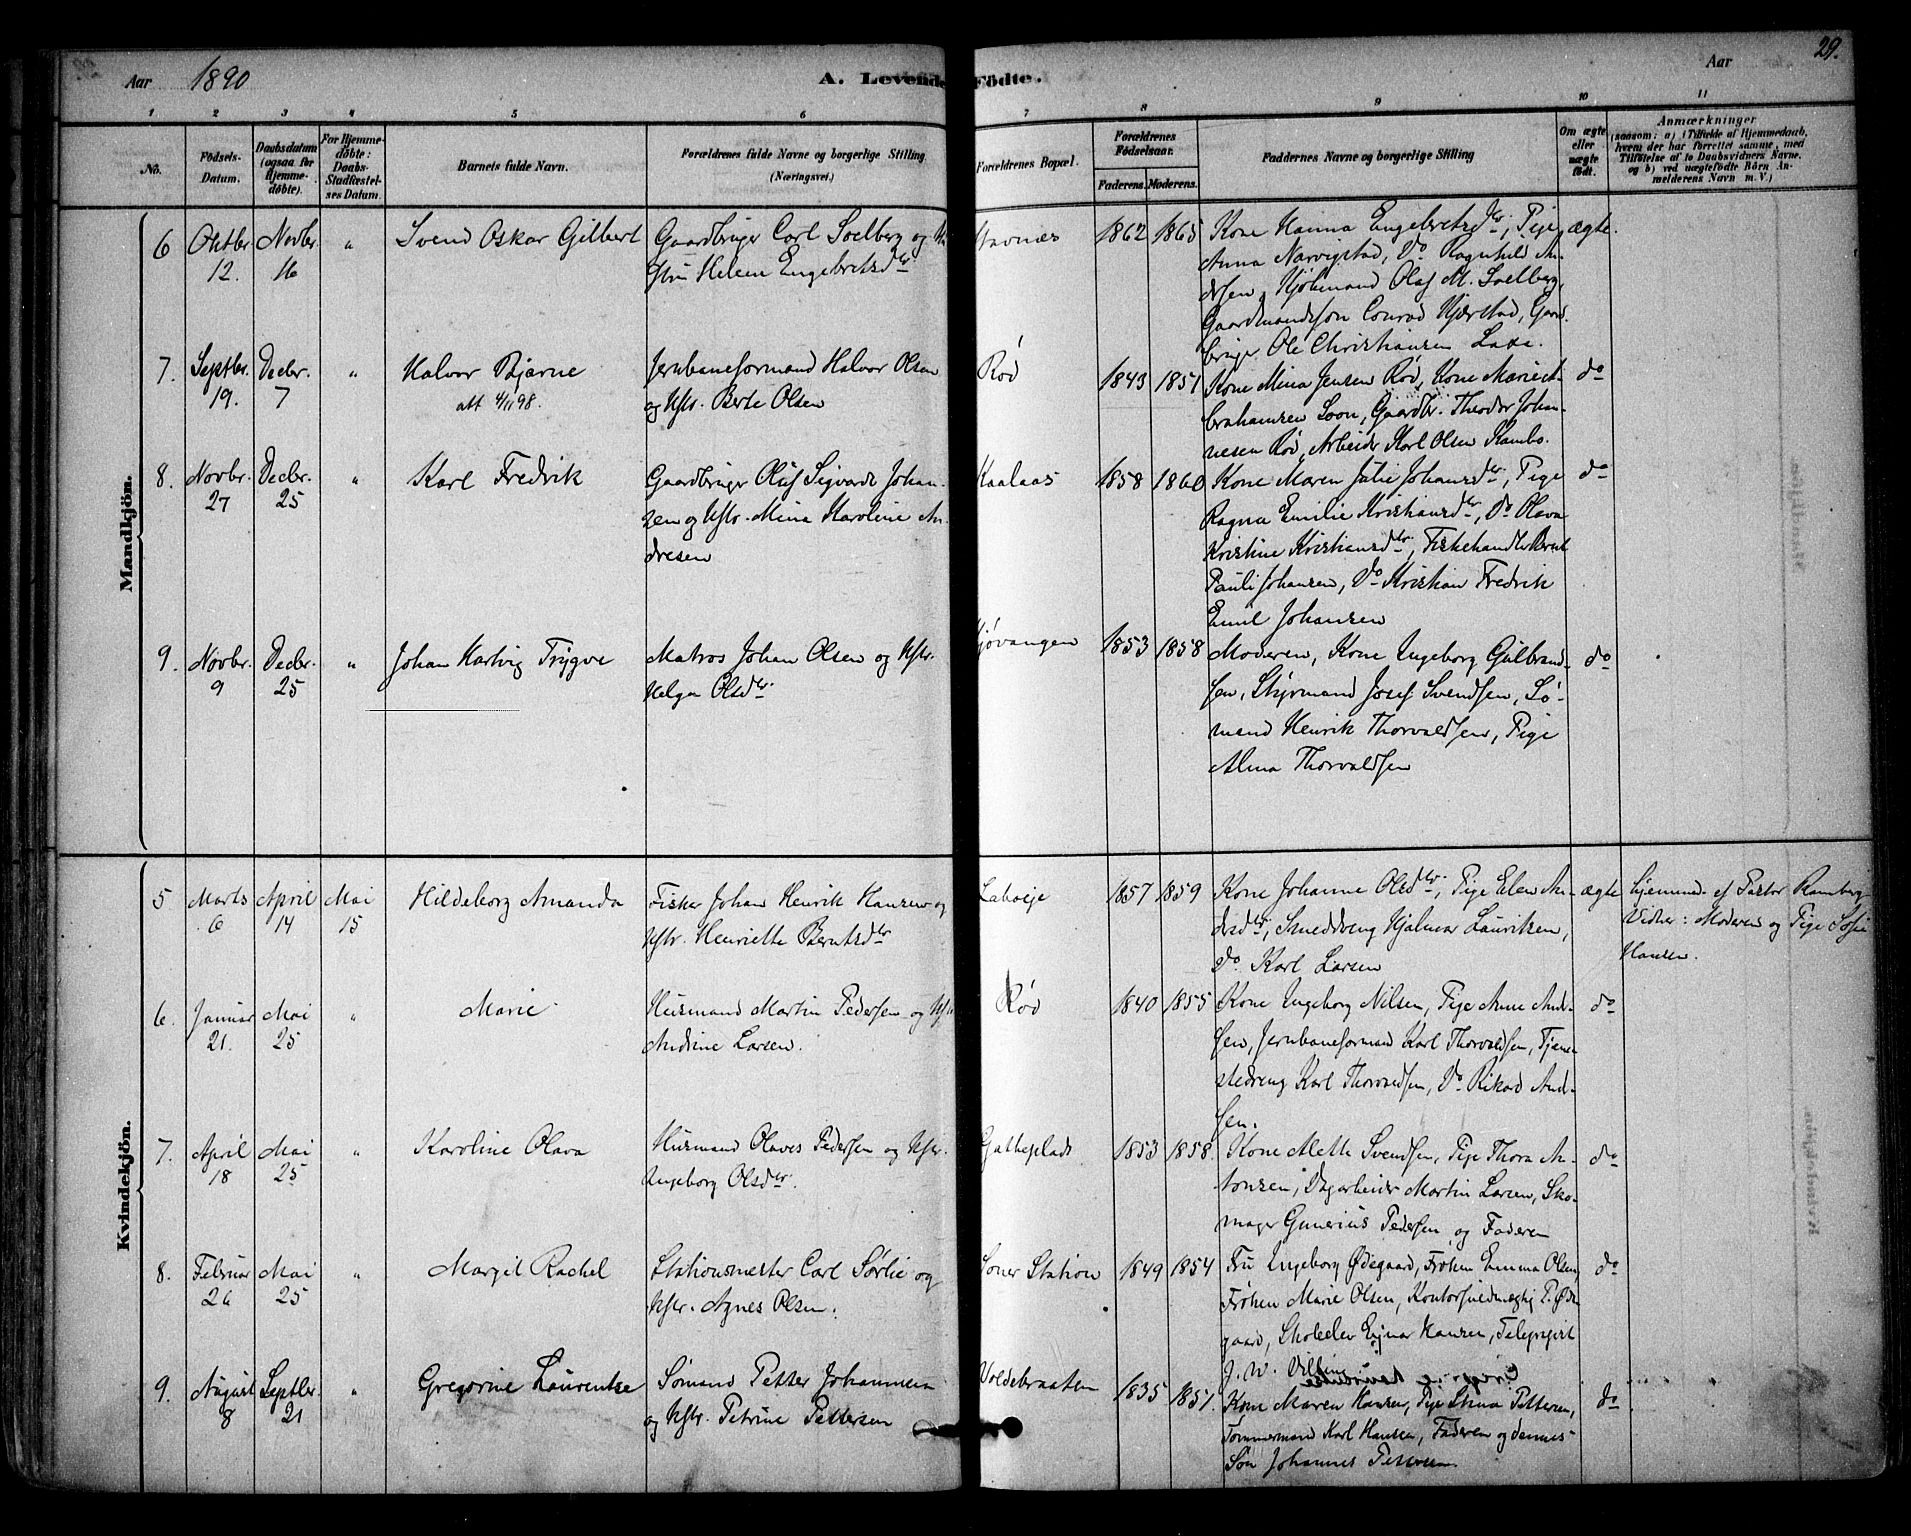 Aar 1890 A. Levende Födte. Aar 29.
1 2 3 4 5 6 7 8 9 10 11
No.
Födsels-Datum.
Daabsdatum (ogsaa for Hjemmedöbte).
For Hjemmedöbte: Daabs-Stadfæstelses Datum.
Barnets fulde Navn.
Forældrenes fulde Navne og borgerlige Stilling (Næringsvei.)
Forældrenes Bopæl.
Forældrenes Födselsaar.
Faderens. Moderens.
Faddernes Navne og borgerlige Stilling
Om ægte eller uægte födt.
Anmærkninger
(saasom: a) i Tilfælde af Hjemmedaab, hvem der har forrettet samme, med Tilföielse af to Daabsvidners Navne, og b) ved uægtefödte Börn Anmelderens Navn m. V.)
Mandkjön.
6 Oktbr 12. Novbr. 16 " Svend Oskar Gilbert
Gaardbruger Carl Soelberg og
Helene Engebretsdtr
Stavnæs 1862 1865
Kone Hanna Engebretsdtr, Pige
Anna Narvigstad, Do Ragnhild An-
dersen, Kjöbmand Olaf M. Soelberg,
Gaardmandssön Conrad Kjærstad, Gaard-
bruger Ole Christiansen Laxe.
ægte.
7. Septbr. 19. Decbr. 7 " Halvor Bjarne
att 4/11 98.
Jernbaneformand Halvor Olsen
og Hstr. Berte Olsen
Rød 1843 1851
Kone Mina Jensen Rød, Kone Marie A-
brahamsen Soon, Gaardbr. Theodor Johan-
nesen Rød, Arbeider Karl Olsen Kambo.
do
8. Novbr. 27 Decbr. 25 " Karl Fredrik
Gaardbruger Oluf Sigvardt Johan-
sen og Hstr. Mina Karoline An-
dresen
Kaalaas 1858 1860
Kone Maren Julie Johansdtr, Pige
Ragna Emilie Kristiansdtr, Do Olava
Kristine Kristiansdtr, Fiskehandler Bernt
Pauli Johansen, Do Kristian Fredrik
Emil Johansen
do
9. Novbr. 9 Decbr. 25 " Johan Hartvig Trygve
Matros Johan Olsen og Hstr.
Helga Olsdtr
Kjøvangen 1853 1858
Moderen, Kone Ingeborg Gulbrand-
sen, Styrmand Josef Svendsen, Sø-
mand Henrik Thorvaldsen, Pige
Alma Thorvaldsen
do
Kvindekjön.
5 Marts 6 April 14 Mai 15 Hildeborg Amanda
Fisker Johan Henrik Hansen og
Hstr. Henriette Berntsdtr
Laboeje 1857 1859
Kone Johanne Olsdtr, Pige Elen An-
drsdtr, Smeddreng Hjalmar Lauritsen,
Do. Karl Larsen
ægte
hjemmed. af Pastor Ramberg
Vidner: Moderen og Pige Sofie
Hansen.
6. Januar 21. Mai 25 " Marie
Husmand Martin Pedersen og Hstr
Andrine Larsen.
Rød 1840 1855
Kone Ingeborg Nilsen, Pige Anne And-
sen, Jernbaneformand Karl Thorvaldsen, Tjene-
stedreng Karl Thorvaldsen, Do Rikard And-
sen.
do
7. April 18 Mai 25 " Karoline Olava
Husmand Olaves Pedersen og Hstr.
Ingeborg Olsdtr.
1853 1858.
Kone Alette Svendsen, Pige Thora An-
tonsen, Dagarbeider Martin Larsen, Sko-
mager Gunerius Pedersen og Faderen
do
8. Februar 26 Mai 25 " Margit Rachel
Stationsmester Carl Sørlie og
Hstr. Agnes Olsen.
Soner Station 1849 1854
Fru Ingeborg Ødegaard, Frøken Emma Olsen,
Frøken Marie Olsen, Kontorfuldmægtig P. Øde-
gaard, Skoleelev Ejnar Hansen, Telegrafist
J. W.
do
9. August 8 Septbr. 21 " Gregorine Laurentze
Sømand Petter Johannesen
og Hstr. Petrine Pettersen
Voldebraaten 1835 1851.
Kone Maren Hansen, Pige Stina Pettersen,
Tømmermand Karl Hansen, Faderen og dennes
Søn Johannes Pettersen
do